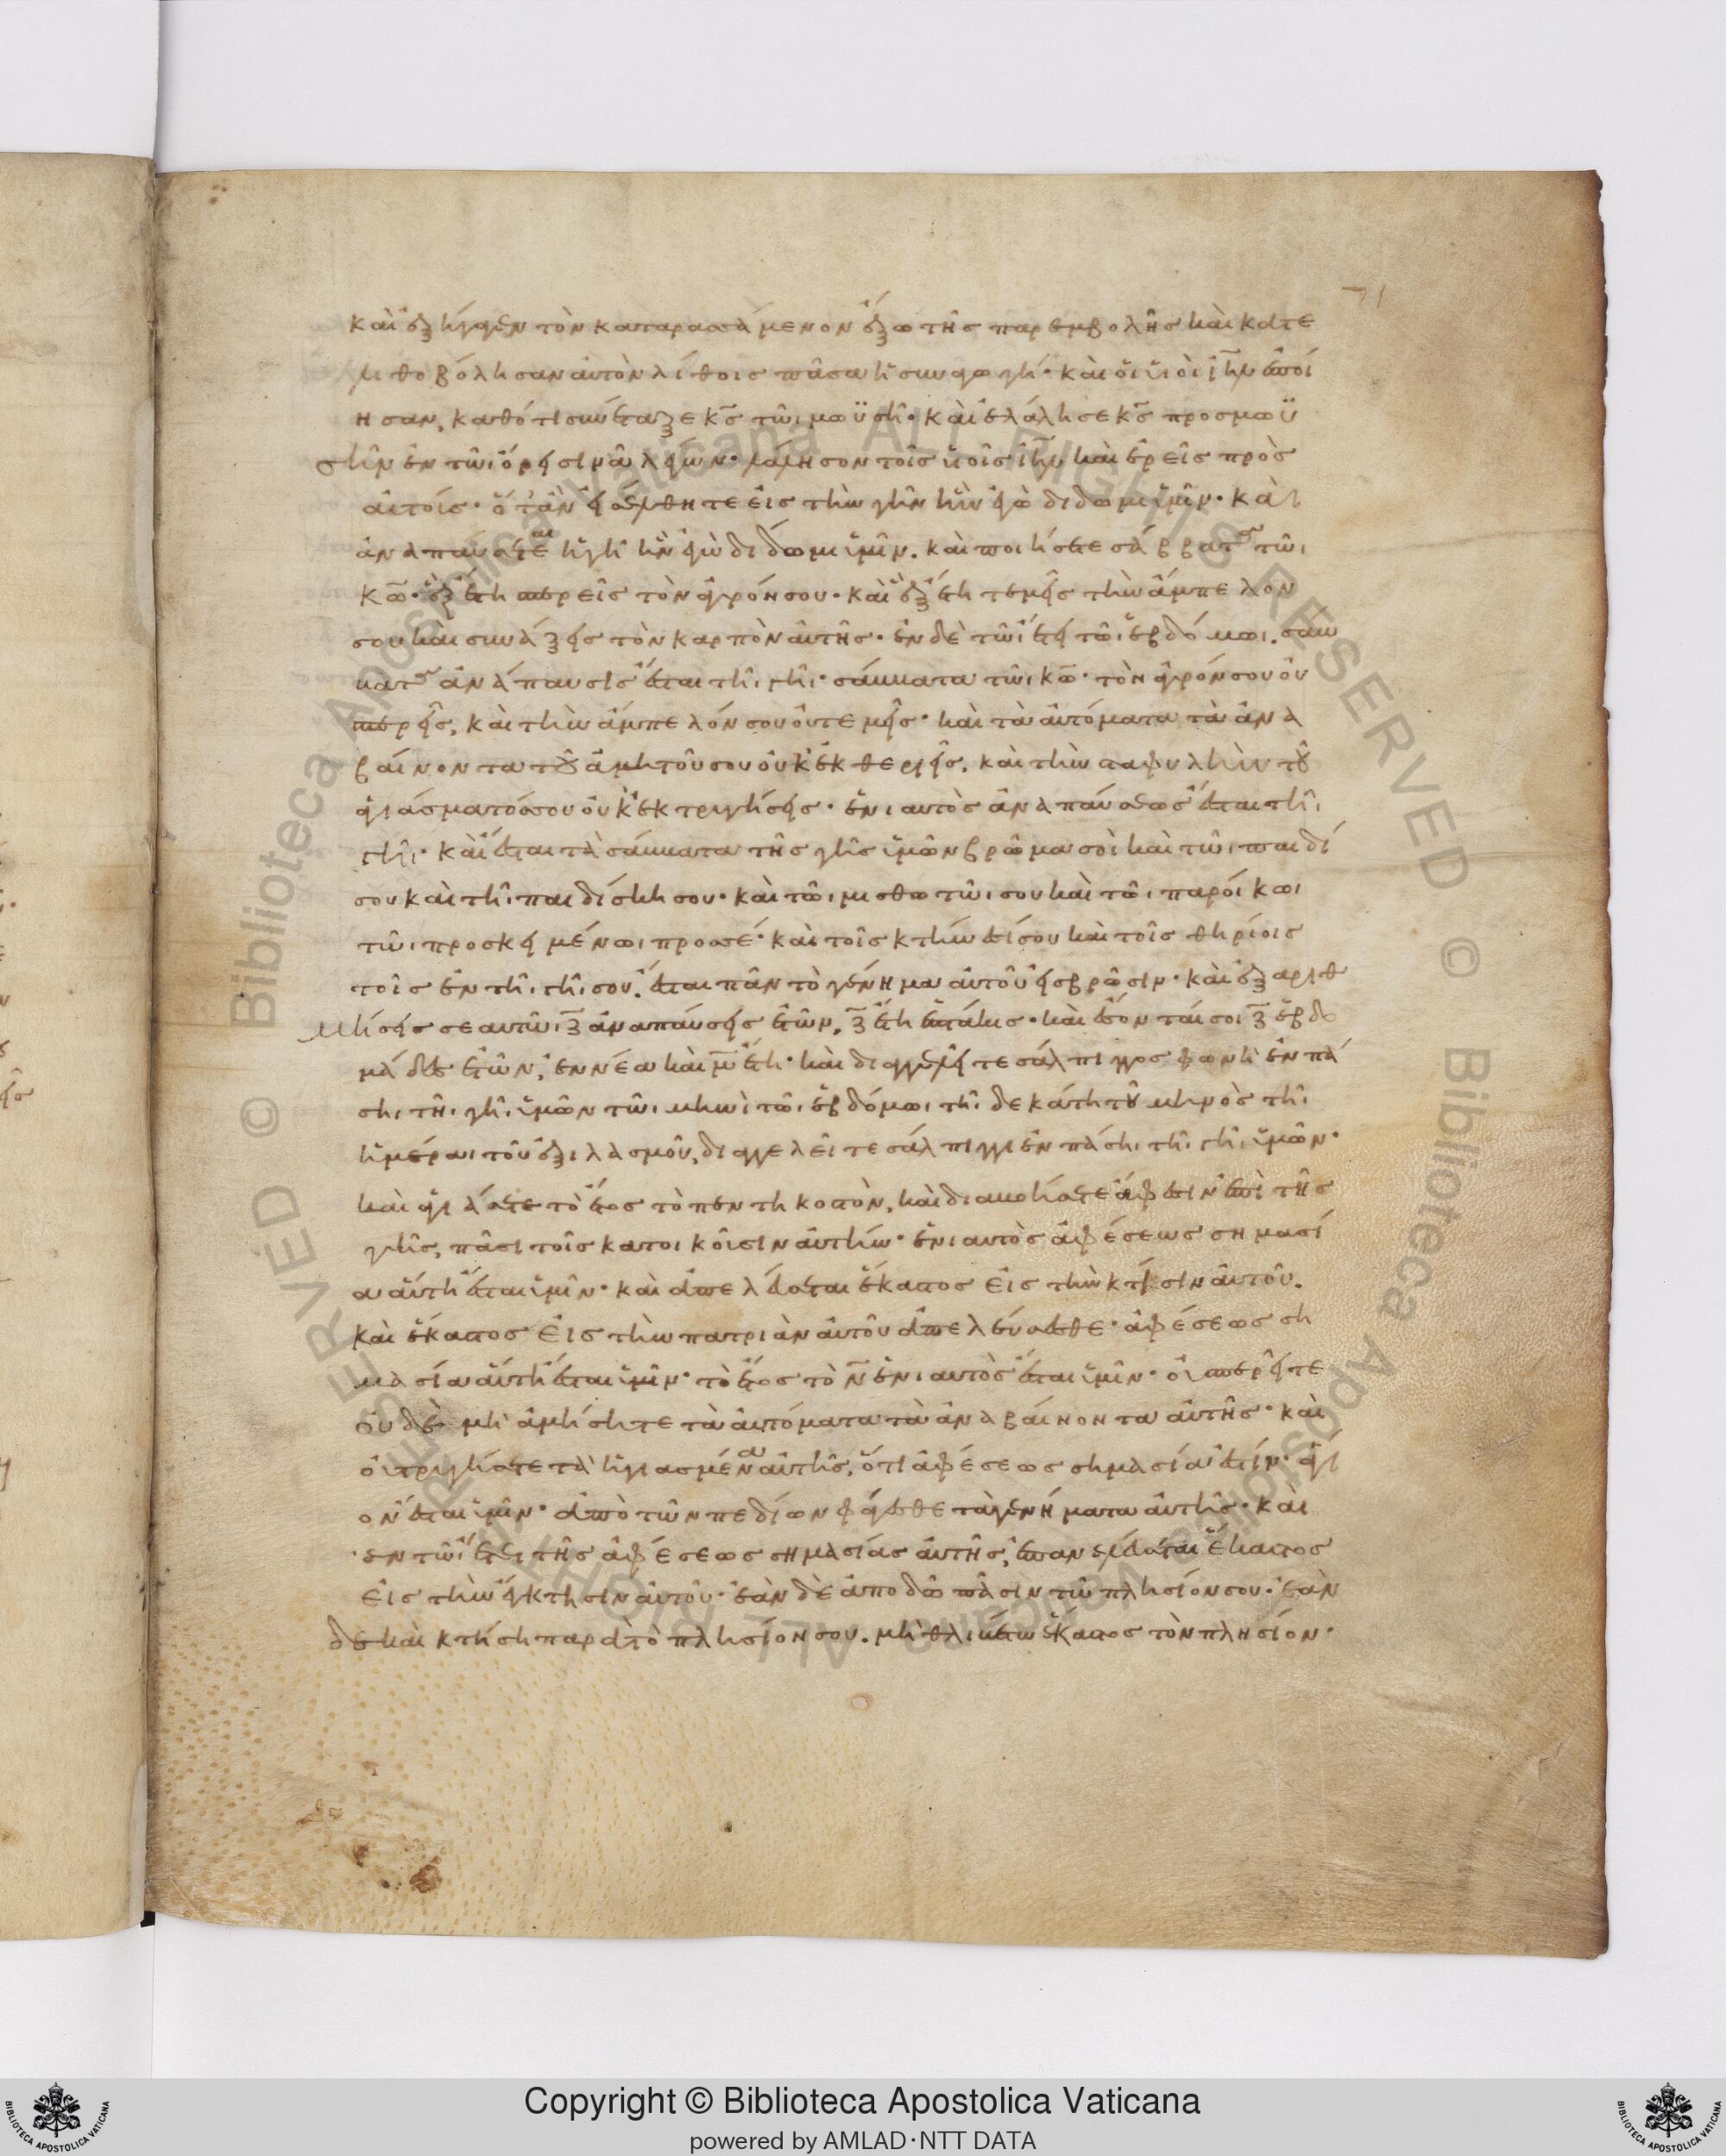 71
καὶ ἐξήγαγεν τὸν καταρασάμενον ἔξω τῆς παρεμβολῆς καὶ κατε
λιθοβόλησαν αὐτὸν λίθοις πᾶσα ἡ συναγωγή· καὶ οἱ υἱοὶ ιη̅λ ἐποί
ησαν, καθότι συνέταξε κ̅ς τῶι μωϋσῆ· καὶ ἐλάλησε κ̅ς προς μωϋ
σῆν ἐν τῶι ὄρει σινᾶ λέγων· λάλησον τοῖς υἱοῖς ιη̅λ καὶ ἐρεῖς πρὸς
αὐτοίς· ὅταν εἰσέλθητε εἰς τὴν γῆν ἣν ἐγὼ δίδωμι ὑμῖν· καὶ
ἀναπαύσεται ἡ γῆ ἣν ἐγὼ δίδωμι ὑμῖν. καὶ ποιήσετε σάββατα τῶι
κ̅ω· ἓξ ἔτη σπερεῖς τὸν ἀγρόν σου· καὶ ἓξ ἔτη τεμεῖς τὴν ἄμπελον
σου καὶ συνάξεις τὸν καρπὸν αὐτῆς· ἐν δὲ τῶι ἔτει τῶι ἑβδόμωι. σαμ
βατα ἀνάπαυσις ἔσται τῆι γῆι· σάββατα τῶι κ̅ω· τὸν ἀγρόν σου οὐ
σπερεῖς, καὶ τὴν ἄμπελόν σου οὐ τεμεῖς· καὶ τὰ αὐτόματα τὰ ἀνα
βαίνοντα τοῦ ἀμητοῦ σου οὐκ ἐκθεριεῖς, καὶ τὴν σταφυλὴν τοῦ
ἁγιάσματός σου οὐκ ἐκτρυγήσεις· ἐνιαυτὸς ἀναπαύσεως ἔσται τῆι
γῆι· καὶ ἔσται τὰ σάββατα τῆς γῆς ὑμῶν βρῶμα σοὶ καὶ τῶι παιδί
σου καὶ τῆι παιδίσκη σου· καὶ τῶι μισθωτῶι σου καὶ τῶι παροίκωι
τῶι προσκειμένωι προς σέ· καὶ τοῖς κτήνεσί σου καὶ τοῖς θηρίοις
τοῖς ἐν τῆι γῆι σου. ἔσται πᾶν τὸ γένημα αὐτοῦ εἰς βρῶσιν· καὶ ἐξαριθ
μήσεις σεαυτῶι ζ̅ ἀναπαύσεις ἐτῶν, ζ̅ ἔτη ἑπτάκις· καὶ ἔσονταί σοι ζ̅ ἑβδο
μάδες ἐτῶν, ἐννέα καὶ μ̅ ἔτη· καὶ διαγγελεῖτε σάλπιγγος φωνῆ ἐν πά
ση τῆι γῆι ὑμῶν τῶι μηνὶ τῶι ἑβδόμωι τῆι δεκάτη τοῦ μηνὸς τῆι
ἡμέραι τοῦ ἐξιλασμοῦ, διαγγελεῖτε σάλπιγγι ἐν πάσηι τῆι γῆι ὑμῶν·
καὶ ἁγιάσετε τὸ ἔτος τὸ πεντηκοστὸν, καὶ διαβοήσετε ἄφεσιν ἐπὶ τῆς
γῆς, πᾶσι τοῖς κατοικοῦσιν αὐτήν· ἐνιαυτὸς ἀφέσεως σημασί
α αὕτη ἔσται ὑμῖν· καὶ ἀπελεύσεται ἕκαστος εἰς τὴν κτῆσιν αὐτοῦ.
καὶ ἕκαστος εἰς τὴν πατριὰν αὐτοῦ ἀπελεύσεσθε· ἀφέσεως ση
μασία αὕτη ἔσται ὑμῖν· τὸ ἔτος τὸ ν̅ ἐνιαυτὸς ἔσται ὑμῖν· οὐ σπερεῖτε
οὐδὲ μὴ ἀμήσητε τὰ αὐτόματα τὰ ἀναβαίνοντα αὐτῆς· καὶ
οὐ τρυγήσετε τὰ ἡγιασμένα αὐτῆς, ὅτι ἀφέσεως σημασία ἐστίν· ἅγι
ον ἔσται ὑμῖν· ἀπὸ τῶν πεδίων φάγεσθε τὰ γενήματα αὐτῆς· καὶ
ἐν τῶι ἔτει τῆς ἀφέσεως σημασίας αὐτῆς, ἐπανελεύσεται ἕκαστος
εἰς τὴν ἔγκτησιν αὐτοῦ· ἐὰν δὲ ἀποδῶ πᾶσιν τῶ πλησίον σου· ἐὰν
δε καὶ κτήση παρὰ τὸ πλησίον σου. μὴ θλιβέτω ἕκαστος τὸν πλησίον·
Copyright © Biblioteca Apostolica Vaticana
powered by AMLAD·NTT DATA